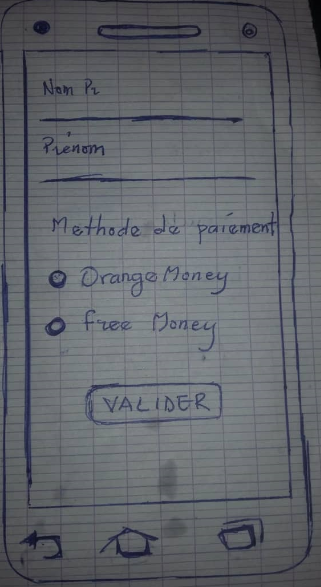 Nom Pr
Prénom
Methode de paiement
Orange Money
free Money
VALIDER